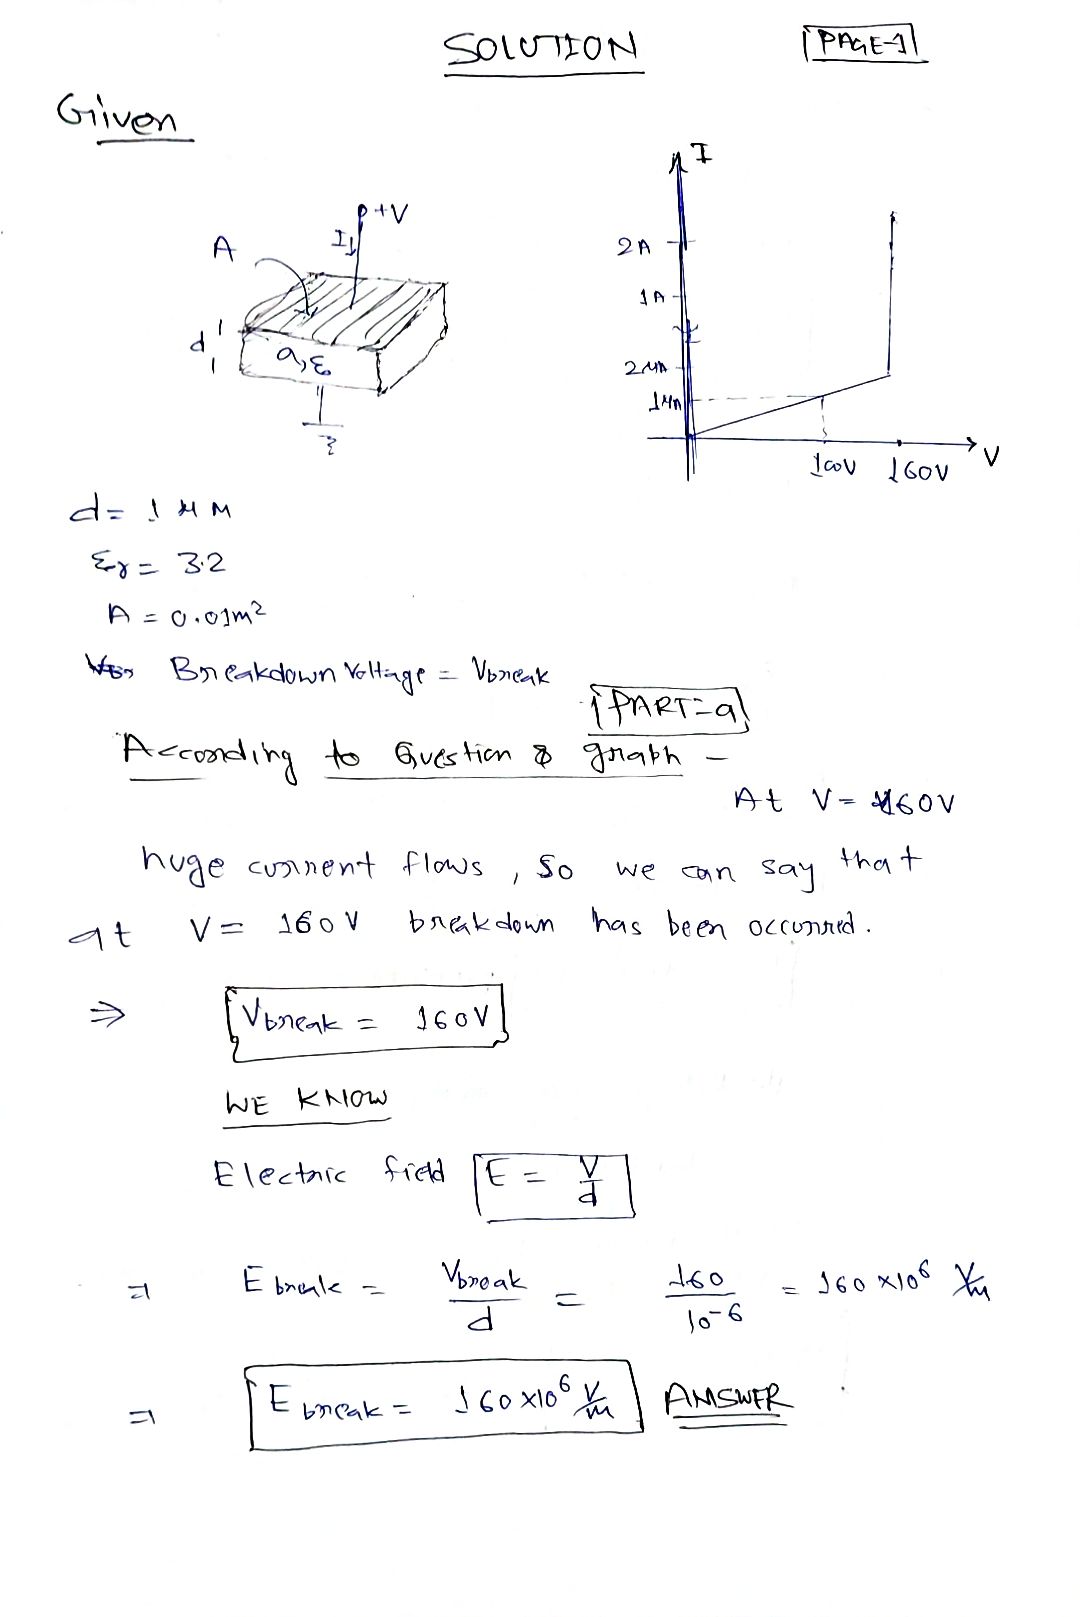 SOLUTION
PAGE-1
Given
I
P+V
I↓
A
2A
1A
d
a, ε
2μA
1μA
100V
160V
V
d = 1 μM
εr = 3.2
A = 0.01m²
Breakdown Voltage = Vbreak
PART=a
According to Question & graph –
At V = 160V
huge current flows, So we can say that
at V = 160 V breakdown has been occurred.
⇒ Vbreak = 160V
WE KNOW
Electric field E = V/d
⇒ Ebreak = Vbreak/d = 160/10-6 = 160 x10⁶ V/m
⇒ Ebreak = 160 x10⁶ V/m ANSWER